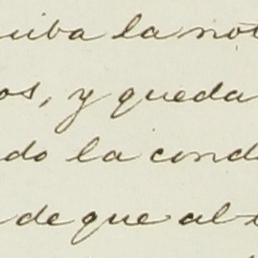 uiba la not
os, y queda
do la cond
de que al